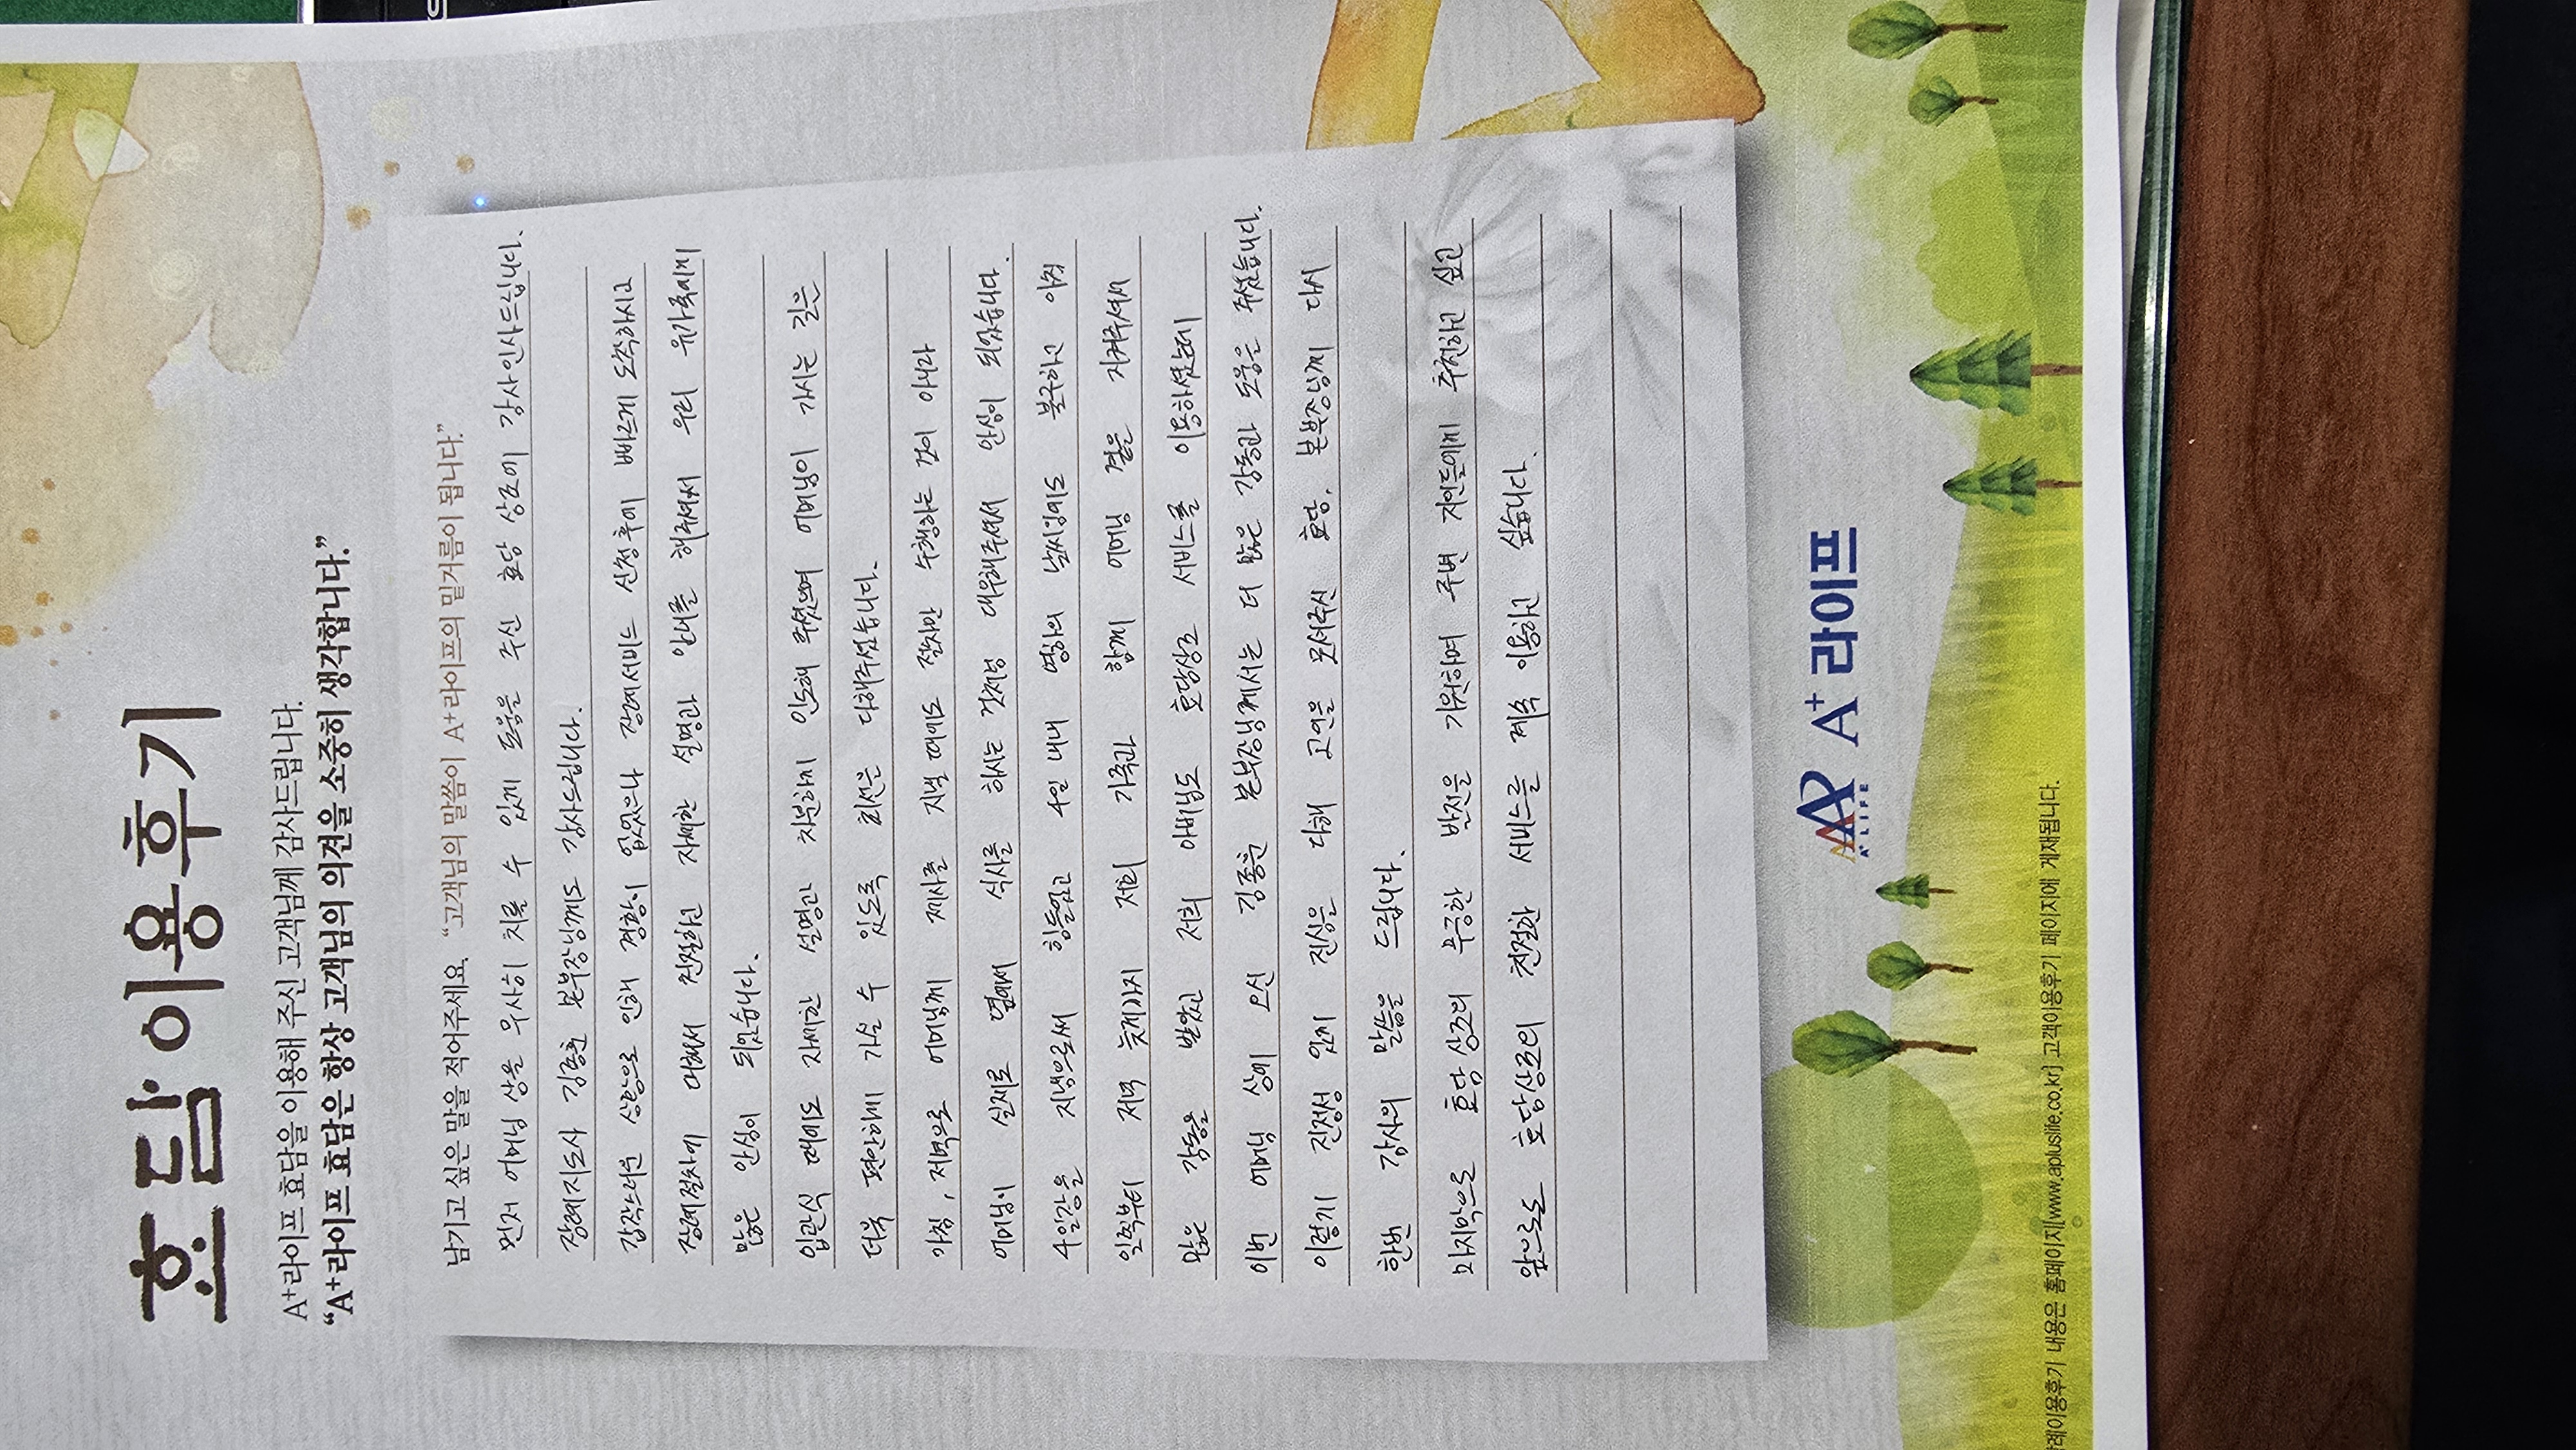 효담 이용후기
A⁺라이프 효담을 이용해 주신 고객님께 감사드립니다.
“A⁺라이프 효담은 항상 고객님의 의견을 소중히 생각합니다.”
남기고 싶은 말을 적어주세요. “고객님의 말씀이 A⁺라이프의 밑거름이 됩니다.”
먼저 어머님 상을 무사히 치를 수 있게 도움을 주신 효담 상조에 감사인사드립니다.
장례지도사 김종훈 본부장님께도 감사드립니다.
갑작스러운 상황으로 인해 경황이 없었으나 장례서비스 신청후에 빠르게 도착하시고
장례절차에 대해서 친절하고 자세한 설명과 안내를 해주셔서 우리 유가족에게
많은 안심이 되었습니다.
입관식 때에도 자세한 설명과 차분하게 인도해 주셨으며 어머님이 가시는 길은
더욱 편안하게 가실 수 있도록 최선을 다해주셨습니다.
아침, 저녁으로 어머님께 제사를 지낼 때에도 절차만 수행하는 것이 아니라
어머님이 실제로 옆에서 식사를 하시는 것처럼 대우해주셔서 안심이 되었습니다.
4일장을 지냄으로써 힘들었고 4일 내내 영하의 날씨임에도 불구하고 아침
일찍부터 저녁 늦게까지 저희 가족과 함께 어머님 곁을 지켜주셔서
많은 감동을 받았고 저희 아버님도 효담상조 서비스를 이용하셨는데
이번 어머님 상에 오신 김종훈 본부장님께서는 더 많은 감동과 도움을 주셨습니다.
이렇게 진정성 있게 진심을 다해 고인을 모셔주신 효담, 본부장님께 다시
한번 감사의 말씀을 드립니다.
마지막으로 효담 상조의 무궁한 발전을 기원하며 주변 지인들에게 추천하고 싶고
앞으로도 효담상조의 친절한 서비스를 계속 이용하고 싶습니다.
A⁺ LIFE A⁺ 라이프
례이용후기 내용은 홈페이지[www.apluslife.co.kr] 고객이용후기 페이지에 게재됩니다.